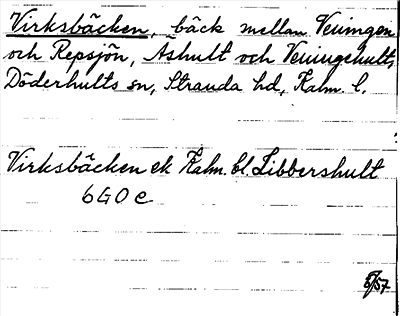 Virksbäcken, bäck mellan Veningen
och Repsjön, Århult och Veningehult,
Döderhults sn, Stranda hd, Kalm. l.
Virksbäcken ek Kalm. bl. Libbershult
6G0c
5/57